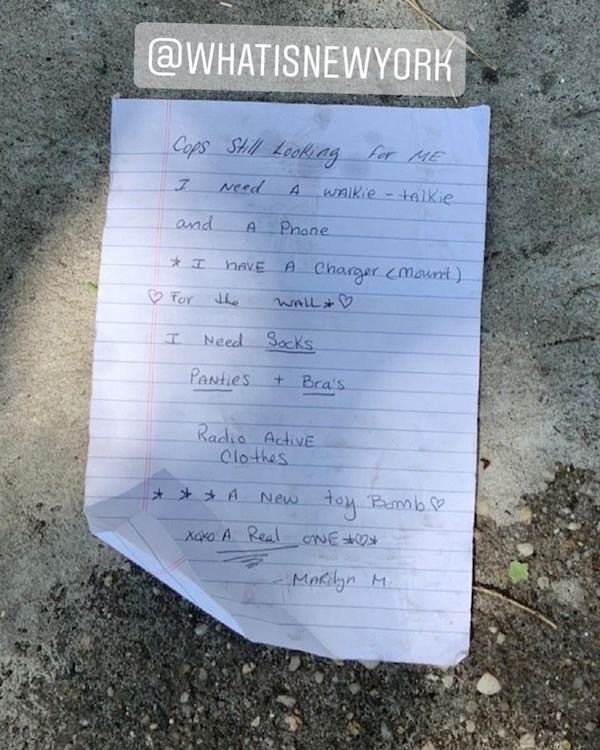 @WHATISNEWYORK
Cops Still Looking for ME
I Need A WALKie-tAlKie
and A Phone
* I HAVE A Charger (Mount)
♡ For the WALL*♡
I Need Socks
PANTies + Bra's
Radio Active
Clothes
* * * A New toy Bomb♡
xoxo A Real ONE *♡*
- MARilyn M.